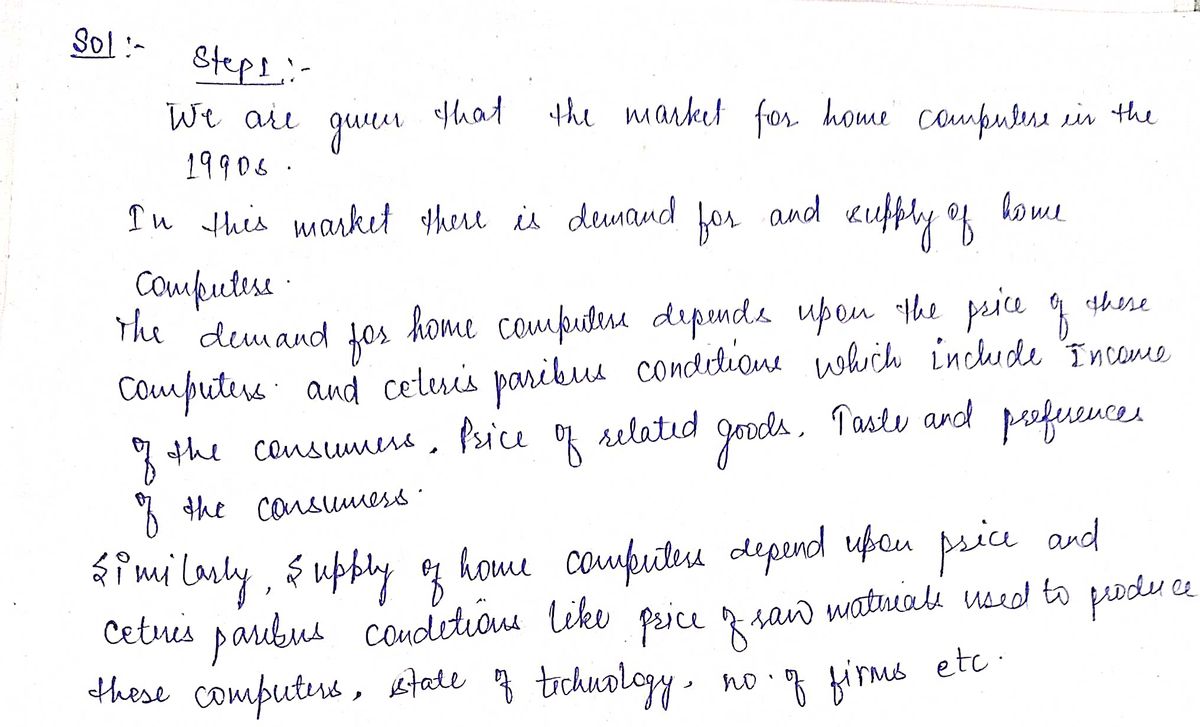 Sol :-
Step 1 :-
We are given that the market for home computers in the
1990s .
In this market there is demand for and supply of home
Computers .
The demand for home computers depends upon the price of these
Computers . and ceteris paribus conditions which include Income
of the consumers , Price of related goods , Taste and preferences
of the consumers .
Similarly , Supply of home computers depend upon price and
ceteris paribus conditions like price of raw materials used to produce
these computers , state of technology , no . of firms etc .